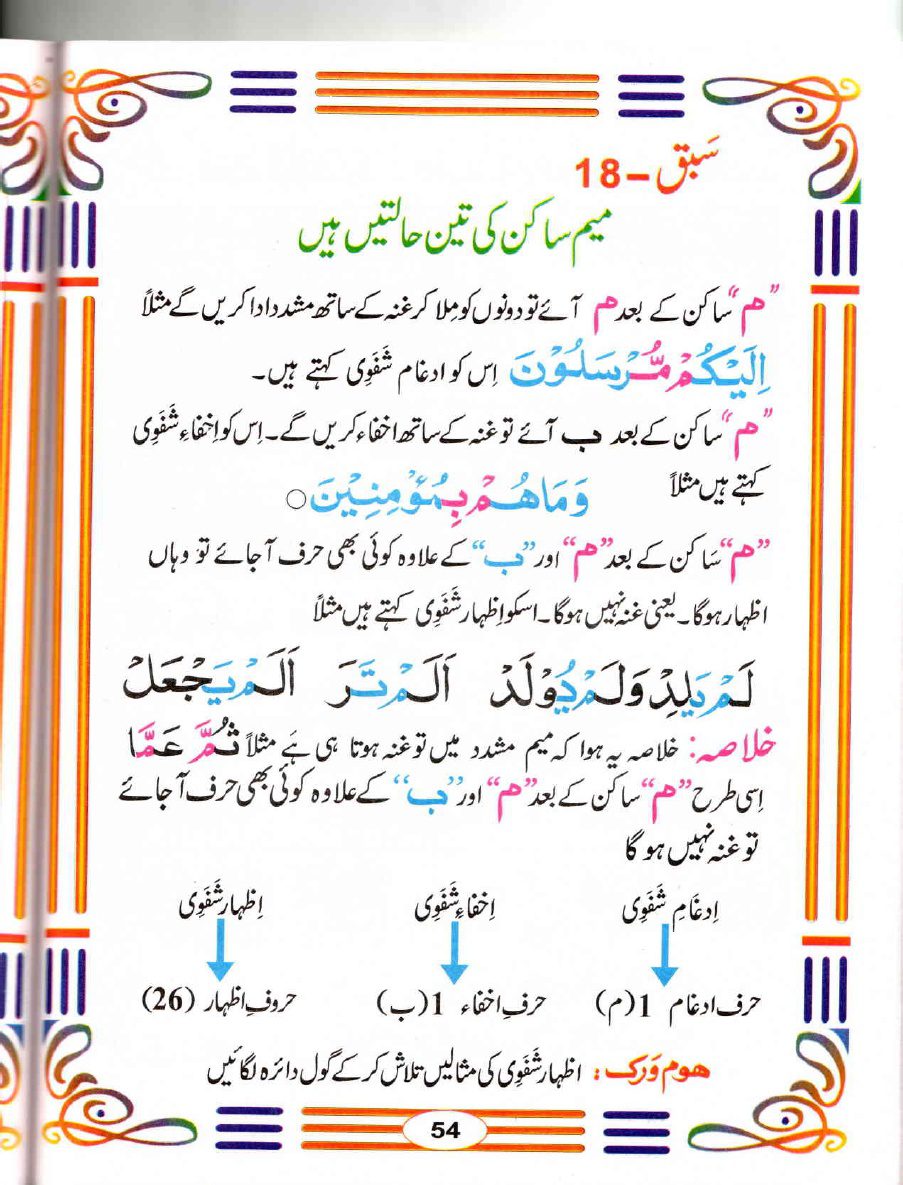 سَبق – 18
میم ساکن کی تین حالتیں ہیں
”م“ ساکن کے بعد م آئے تو دونوں کو مِلا کر غنہ کے ساتھ مشدد ادا کریں گے مثلاً
اِلَيْكُمْ مُّرْسَلُوْنَ اِس کو ادغام شَفَوِی کہتے ہیں۔
”م“ ساکن کے بعد ب آئے تو غنہ کے ساتھ اخفاء کریں گے۔ اِس کو اِخفاءِ شَفَوِی
کہتے ہیں مثلاً وَمَا هُمْ بِمُؤْمِنِيْنَ○
”م“ سَاکن کے بعد ”م“ اور ”ب“ کے علاوہ کوئی بھی حرف آجائے تو وہاں
اظہار ہوگا۔ یعنی غنہ نہیں ہوگا۔ اسکو اِظہار شَفَوِی کہتے ہیں مثلاً
لَمْ يَلِدْ وَلَمْ يُوْلَدْ اَلَمْ تَرَ اَلَمْ يَجْعَلْ
خلاصہ: خلاصہ یہ ہوا کہ میم مشدد میں تو غنہ ہوتا ہی ہَے مثلاً ثُمَّ عَمَّا
اِسی طرح ”م“ ساکن کے بعد ”م“ اور ”ب“ کے علاوہ کوئی بھی حرف آجائے
تو غنہ نہیں ہو گا
اِدغَامِ شَفَوِی اِخفاءِ شَفَوِی اِظہار شَفَوِی
حرف ادغام 1 (م) حرفِ اخفاء 1 (ب) حروفِ اظہار (26)
ھوم وَرک: اظہار شَفَوِی کی مثالیں تلاش کر کے گول دائرہ لگائیں
54